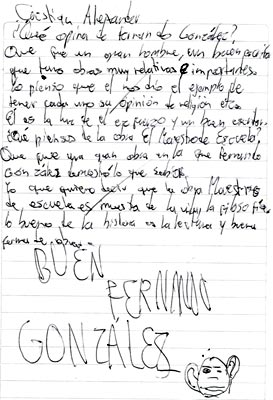 Cristian Alexander
¿Qué opina de Fernando González?
Que fue un gran hombre, un buen escritor
que tuvo obras muy relativas e importantes.
Yo pienso que el nos dio el ejemplo de
tener cada uno su opinión de religión etc.
El es la luz de el esfuerzo y un buen escritor.
¿Que piensas de la obra El Maestro de Escuela?
Que fue una gran obra en la que Fernando
González demostró lo que sabía.
Yo que quiero decir que la obra Maestros
de escuela es muestra de la vida, la filosofía
lo bueno de la historia es la lectura y buena
forma de
BUEN
FERNANDO
GONZÁLEZ